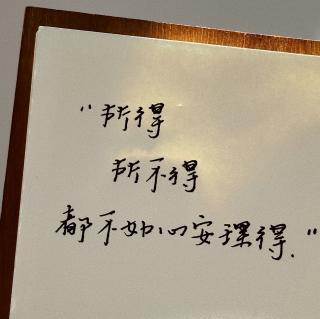 "所得
所不得
都不如心安理得."